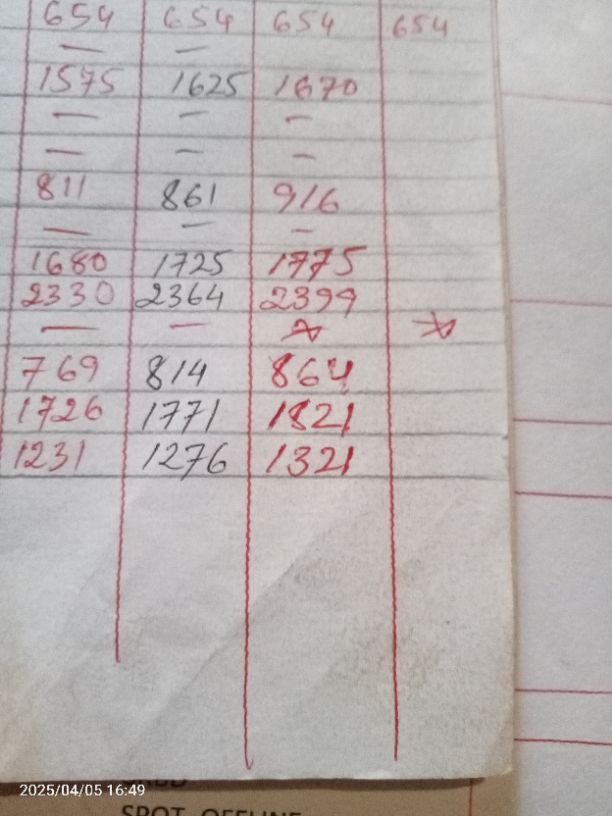 654 654 654 654
— —
1575 1625 1670
— — —
— — —
811 861 916
— — —
1680 1725 1775
2330 2364 2399
— —
769 814 864
1726 1771 1821
1231 1276 1321
2025/04/05 16:49
SPOT OFFLINE